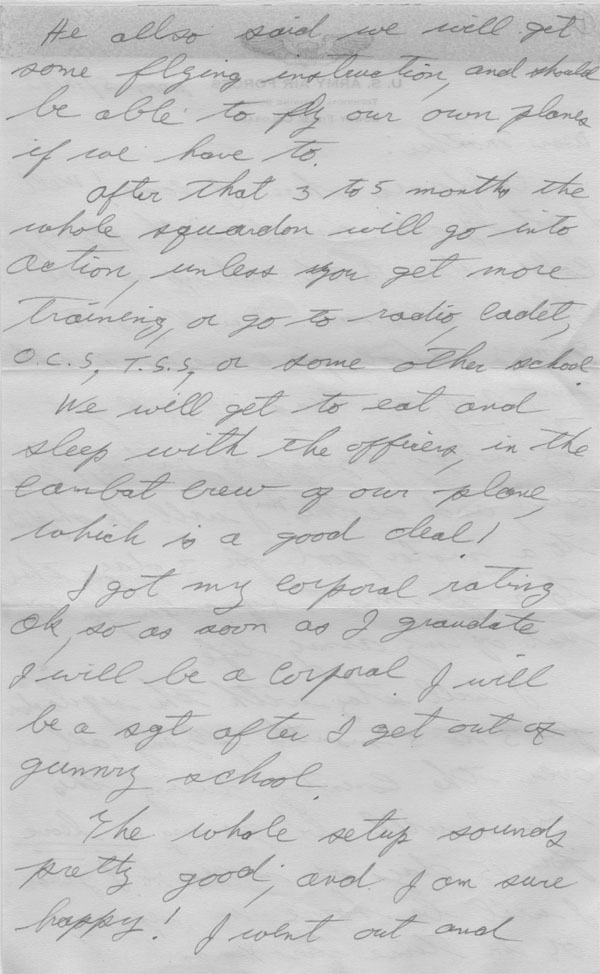 He allso said we will get
some flying instruction, and should
be able to fly our own planes
if we have to.
After that 3 to 5 months the
whole squardon will go into
action, unless you get more
training, or go to radio, cadet,
O.C.S, T.S.S, or some other school
We will get to eat and
sleep with the officers, in the
combat crew of our plane,
which is a good deal!
I got my corporal rating
ok, so as soon as I graudate
I will be a corporal. I will
be a sgt after I get out of
gunnry school.
The whole setup sounds
pretty good, and I am sure
happy! I went out and
U.S. ARMY AIR FORCES